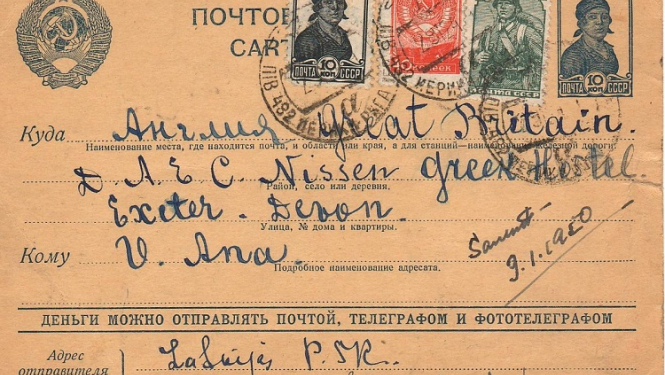 ПОЧТОВ
CART
ПОЧТА 10 КОП СССР
10 КОП СССР
Куда Англия Great Britain.
Наименование места, где находится почта, и области или края, а для станций—наименование железной дороги.
D A E C. Nissen Greex Hotel.
Район, село или деревня.
Exeter. Devon.
Улица, № дома и квартиры.
Кому V. Ana.
Подробное наименование адресата.
9.1.1950
ДЕНЬГИ МОЖНО ОТПРАВЛЯТЬ ПОЧТОЙ, ТЕЛЕГРАФОМ И ФОТОТЕЛЕГРАФОМ
Адрес
отправителя